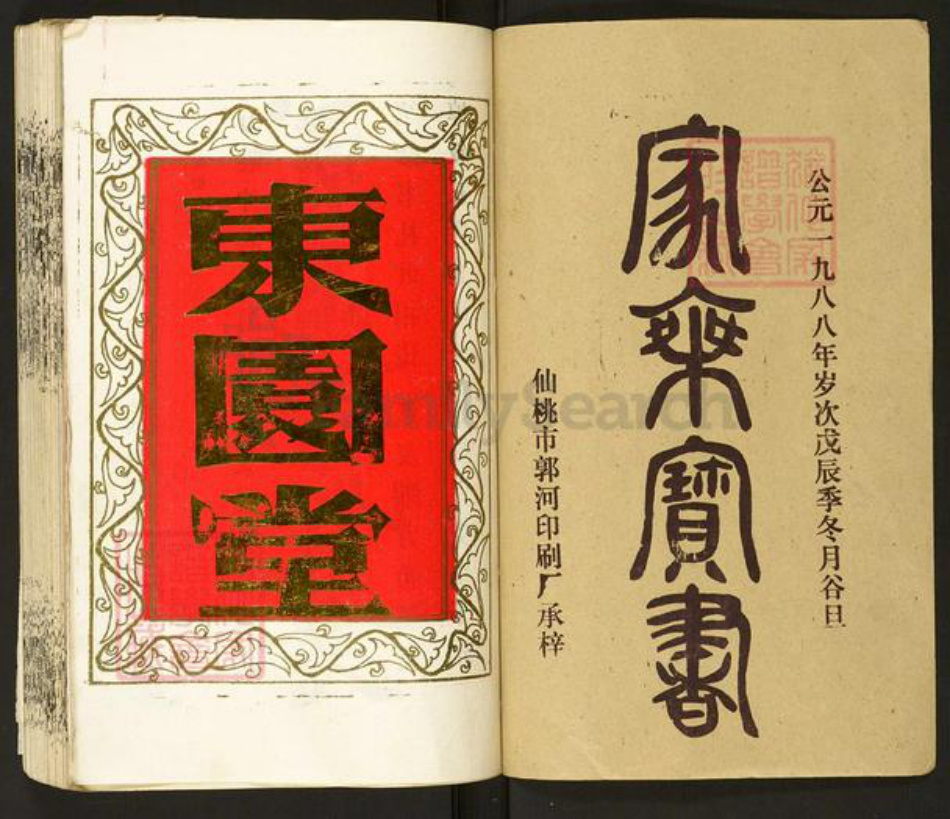 公元一九八八年岁次戊辰季冬月谷旦
家乘寶書
仙桃市郭河印刷厂承梓
東園堂
FamilySearch